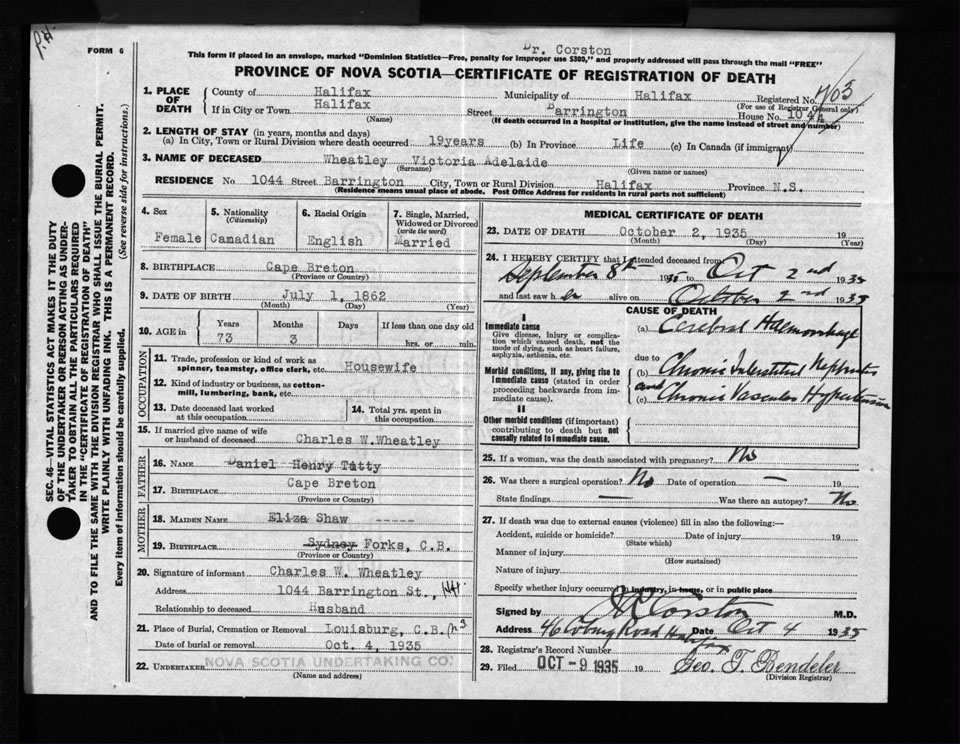 P.H.
FORM 6
Dr. Corston
This form if placed in an envelope, marked "Dominion Statistics—Free, penalty for improper use $300," and properly addressed will pass through the mail "FREE"
PROVINCE OF NOVA SCOTIA—CERTIFICATE OF REGISTRATION OF DEATH
1. PLACE OF DEATH
County of Halifax Municipality of Halifax Registered No.
(For use of Registrar General only)
If in City or Town Halifax Street Barrington House No. 1044
(Name) (If death occurred in a hospital or institution, give the name instead of street and number)
2. LENGTH OF STAY (in years, months and days)
(a) In City, Town or Rural Division where death occurred 19years (b) In Province Life (c) In Canada (if immigrant)
3. NAME OF DECEASED Wheatley Victoria Adelaide
(Surname) (Given name or names)
RESIDENCE No 1044 Street Barrington City, Town or Rural Division Halifax Province N.S.
(Residence means usual place of abode. Post Office Address for residents in rural parts not sufficient)
SEC. 46—VITAL STATISTICS ACT MAKES IT THE DUTY
OF THE UNDERTAKER OR PERSON ACTING AS UNDER-
TAKER TO OBTAIN ALL THE PARTICULARS REQUIRED
IN THE "CERTIFICATE OF REGISTRATION OF DEATH"
AND TO FILE THE SAME WITH THE DIVISION REGISTRAR WHO SHALL ISSUE THE BURIAL PERMIT.
WRITE PLAINLY WITH UNFADING INK. THIS IS A PERMANENT RECORD.
Every item of information should be carefully supplied. (See reverse side for instructions.)
4. Sex
Female
5. Nationality
(Citizenship)
Canadian
6. Racial Origin
English
7. Single, Married,
Widowed or Divorced
(write the word)
Married
8. BIRTHPLACE Cape Breton
(Province or Country)
9. DATE OF BIRTH July 1, 1862
(Month) (Day) (Year)
10. AGE in
Years Months Days If less than one day old
73 3 hrs. or min.
OCCUPATION
11. Trade, profession or kind of work as
spinner, teamster, office clerk, etc. Housewife
12. Kind of industry or business, as cotton-
mill, lumbering, bank, etc.
13. Date deceased last worked
at this occupation
14. Total yrs. spent in
this occupation
15. If married give name of wife
or husband of deceased Charles W.Wheatley
FATHER
16. NAME Daniel Henry Tutty
17. BIRTHPLACE Cape Breton
(Province or Country)
MOTHER
18. MAIDEN NAME Eliza Shaw -----
19. BIRTHPLACE Sydney Forks, C.B.
(Province or Country)
20. Signature of informant Charles W. Wheatley
Address 1044 Barrington St.,
Relationship to deceased Husband
21. Place of Burial, Cremation or Removal Louisburg, C.B.
Date of burial or removal Oct. 4, 1935
22. UNDERTAKER NOVA SCOTIA UNDERTAKING CO.
(Name and address)
MEDICAL CERTIFICATE OF DEATH
23. DATE OF DEATH October 2, 1935 19
(Month) (Day) (Year)
24. I HEREBY CERTIFY that I attended deceased from:
September 8th 1935 to Oct 2nd 1935
and last saw her alive on October 2nd 1935
CAUSE OF DEATH
I
Immediate cause
Give disease, injury or complica-
tion which caused death, not the
mode of dying, such as heart failure,
asphyxia, asthenia, etc.
(a) Cerebral Haemorrhage
due to
Morbid conditions, if any, giving rise to
immediate cause (stated in order
proceeding backwards from im-
mediate cause).
(b) Chronic Interstitial Nephritis
and
(c) Chronic Vascular Hypertension
II
Other morbid conditions (if important)
contributing to death but not
causally related to immediate cause.
25. If a woman, was the death associated with pregnancy? No
26. Was there a surgical operation? No Date of operation — 19
State findings — Was there an autopsy? No
27. If death was due to external causes (violence) fill in also the following:—
Accident, suicide or homicide? Date of injury 19
(State which)
Manner of injury
(How sustained)
Nature of injury
Specify whether injury occurred in industry, in home, or in public place
Signed by Corston M.D.
Address 46 Coburg Road Halifax Date Oct 4 1935
28. Registrar's Record Number
29. Filed OCT - 9 1935 19 Geo. T. Bendeler
(Division Registrar)